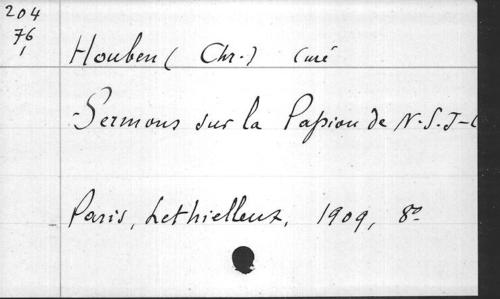 204
76
1
Houben (Chr.) Curé
Sermons sur la Passion de N.-S. J-C
Paris, Lethielleux, 1909, 8º